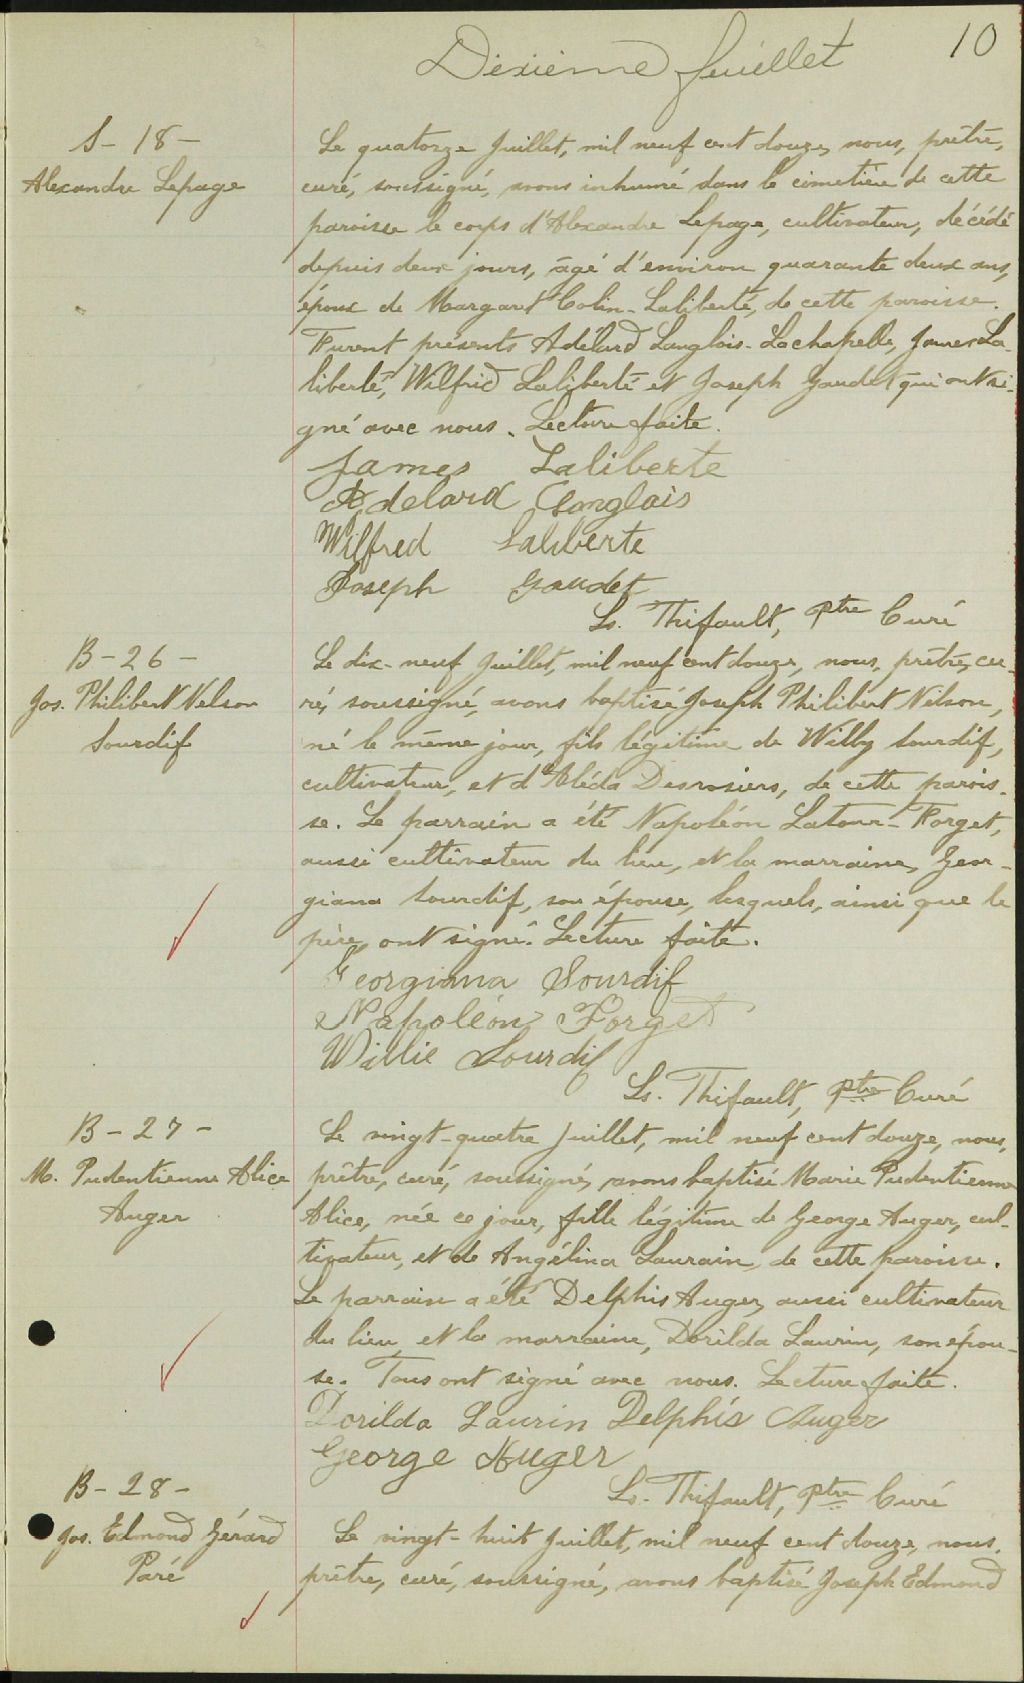 Dixième feuillet
10
S - 18 -
Alexandre Lepage
Le quatorze Juillet, mil neuf cent douze, nous, prêtre,
curé, soussigné, avons inhumé dans le cimetière de cette
paroisse le corps d'Alexandre Lepage, cultivateur, décédé
depuis deux jours, âgé d'environ quarante deux ans,
époux de Margaret Colin-Laliberté, de cette paroisse.
Furent présents Adélard Langlois-Lachapelle, James La-
liberté, Wilfrid Laliberté et Joseph Gaudet qui ont si-
gné avec nous. Lecture faite.
James Laliberte
Adelard Langlais
Wilfred Laliberte
Joseph Gaudet
Ls. Thifault, Ptre Curé
B - 26 -
Jos. Philibert Nelson
Sourdif
Le dix-neuf Juillet, mil neuf cent douze, nous, prêtre, cu-
ré, soussigné, avons baptisé Joseph Philibert Nelson,
né le même jour, fils légitime de Willy Sourdif,
cultivateur, et d'Aléda Desrosiers, de cette parois-
se. Le parrain a été Napoléon Latour-Forget,
aussi cultivateur du lieu, et la marraine, Geor-
giana Sourdif, son épouse, lesquels, ainsi que le
père, ont signé. Lecture faite.
Georgiana Sourdif
Napoléon Forget
Willie Sourdif
Ls. Thifault, Ptre Curé
B - 27 -
M. Pudentienne Alice
Auger
Le vingt-quatre Juillet, mil neuf cent douze, nous,
prêtre, curé, soussigné, avons baptisé Marie Pudentienne
Alice, née ce jour, fille légitime de George Auger, cul-
tivateur, et de Angélina Laurain, de cette paroisse.
Le parrain a été Delphis Auger, aussi cultivateur
du lieu, et la marraine, Dorilda Laurin, son épou-
se. Tous ont signé avec nous. Lecture faite.
Dorilda Laurin Delphis Auger
George Auger
Ls. Thifault, Ptre Curé
B - 28 -
Jos. Edmond Gérard
Paré
Le vingt-huit Juillet, mil neuf cent douze, nous,
prêtre, curé, soussigné, avons baptisé Joseph Edmond